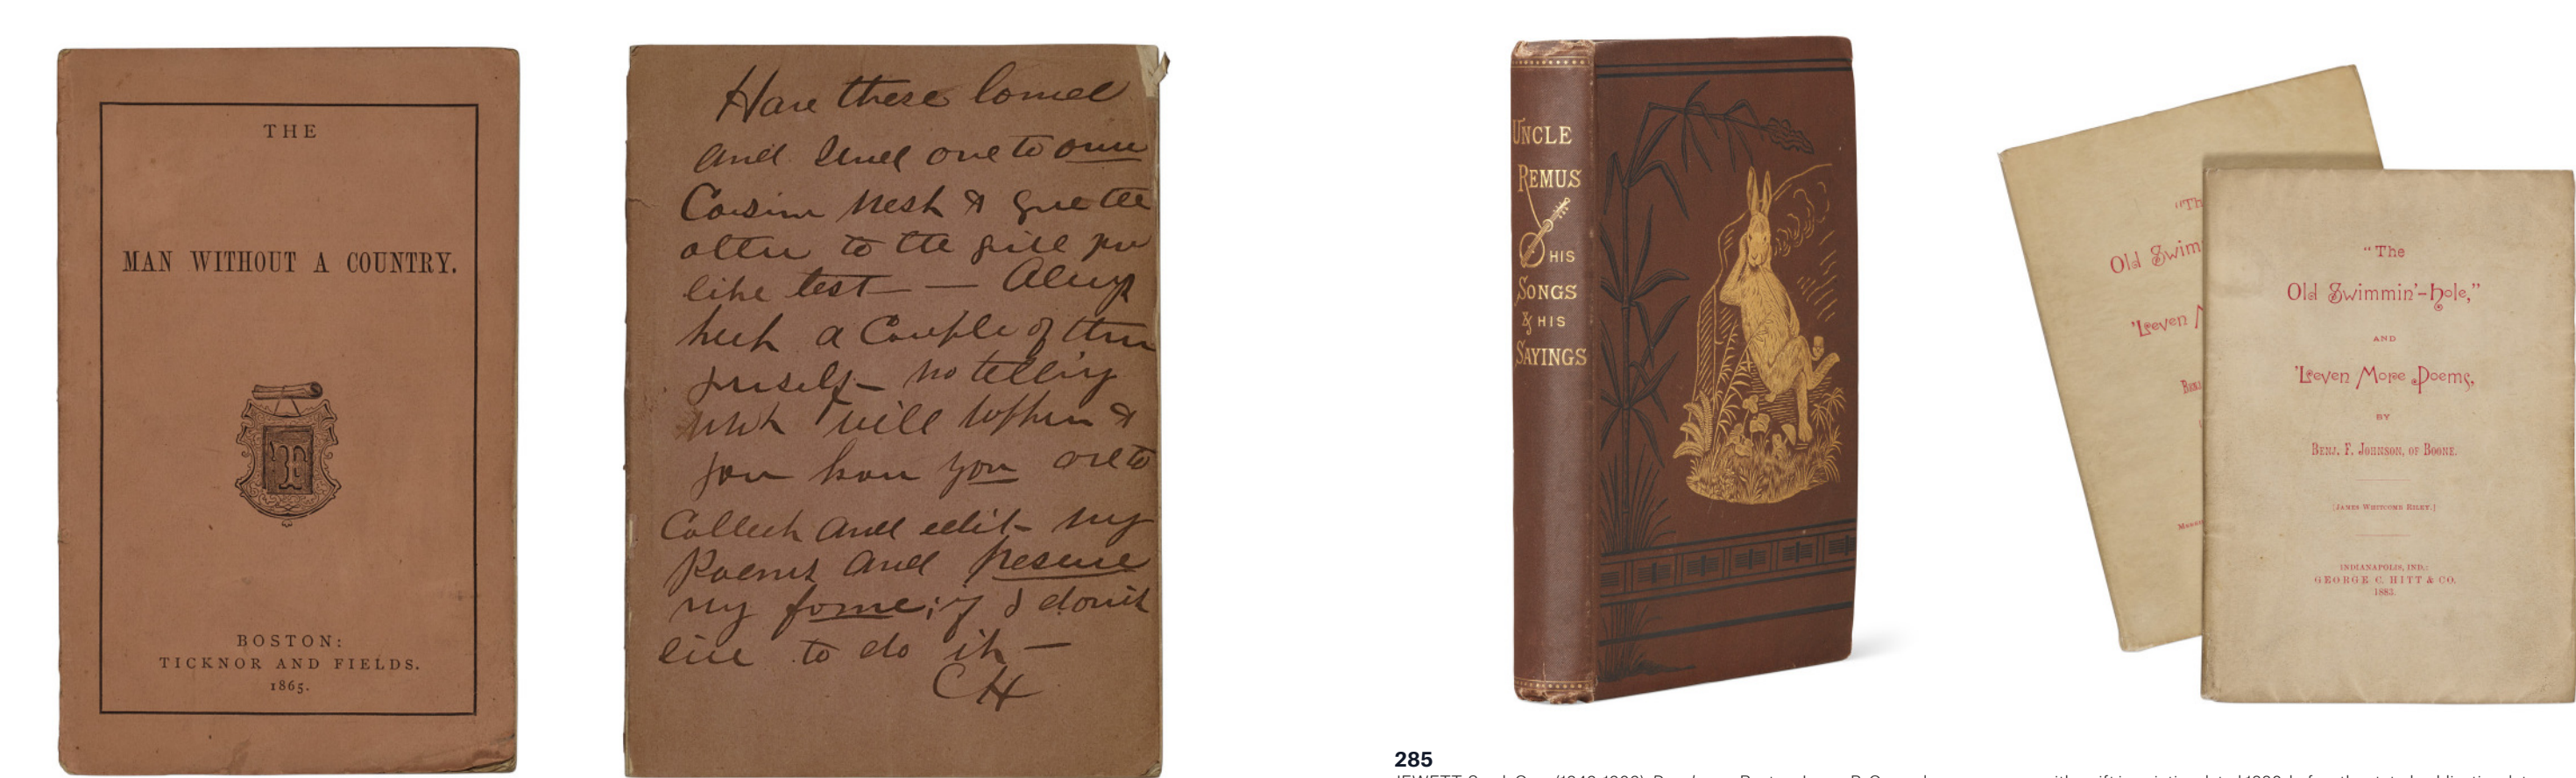 THE
MAN WITHOUT A COUNTRY.
T
BOSTON:
TICKNOR AND FIELDS.
1865.
Have these
and send one to our
Cousin & give the
other to the girl you
like best — — Always
keep a Couple of them
yourself — no telling
what will happen &
you know you are to
Collect and edit my
Poems and rescue
my fame; if I don't
live to do it —
CH
UNCLE
REMUS
HIS
SONGS
& HIS
SAYINGS
"Th
Old Swim
'Leven M
BENJ
"The
Old Swimmin'-hole,"
AND
'Leven More Poems,
BY
BENJ. F. JOHNSON, OF BOONE.
[JAMES WHITCOMB RILEY.]
INDIANAPOLIS, IND.:
GEORGE C. HITT & CO.
1883.
285